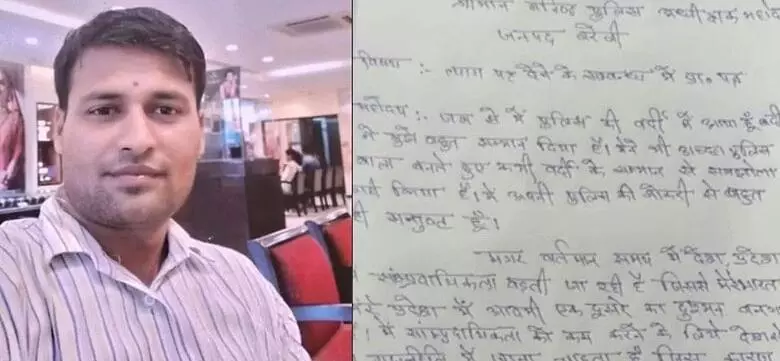 श्रीमान वरिष्ठ पुलिस अधीक्षक महो
जनपद बरेली
विषय :- त्याग पत्र देने के सम्बन्ध में प्रा० पत्र
महोदय :- जब से मैं पुलिस की वर्दी में आया हूँ वर्दी
ने मुझे बहुत सम्मान दिया है। मैंने भी अच्छा पुलिस
वाला बनते हुए कभी वर्दी के सम्मान से समझौता
नहीं किया है। मैं अपनी पुलिस की नौकरी से बहुत
ही सन्तुष्ट हूँ।
मगर वर्तमान समय में देश, प्रदेश
सांप्रदायिकता बढ़ती जा रही है जिससे मेरे भारत
मेरे प्रदेश में आदमी एक दूसरे का दुश्मन बन
। मैं साम्प्रदायिकता को कम करने के लिये देश
राजनीति में